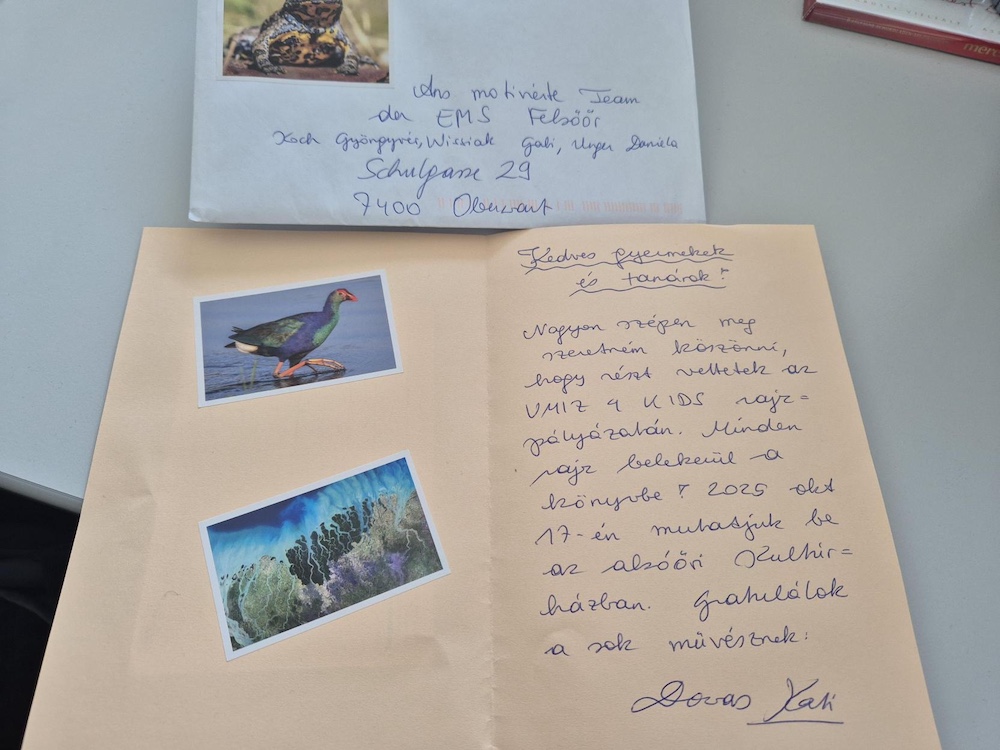 Ans motivierte Team
der EMS Felsőőr
Koch Gyöngyvér, Wissiak Gabi, Unger Daniela
Schulgasse 29
7400 Oberwart
Kedves gyermekek
és tanárok!
Nagyon szépen meg
szeretném köszönni,
hogy részt vettetek az
UMIZ 4 KIDS rajz=
pályázatán. Minden
rajz belekerül a
könyvbe! 2025 okt
17-én mutatjuk be
az alsóőri Kultúr=
házban. Gratulálok
a sok művésznek:
Kati